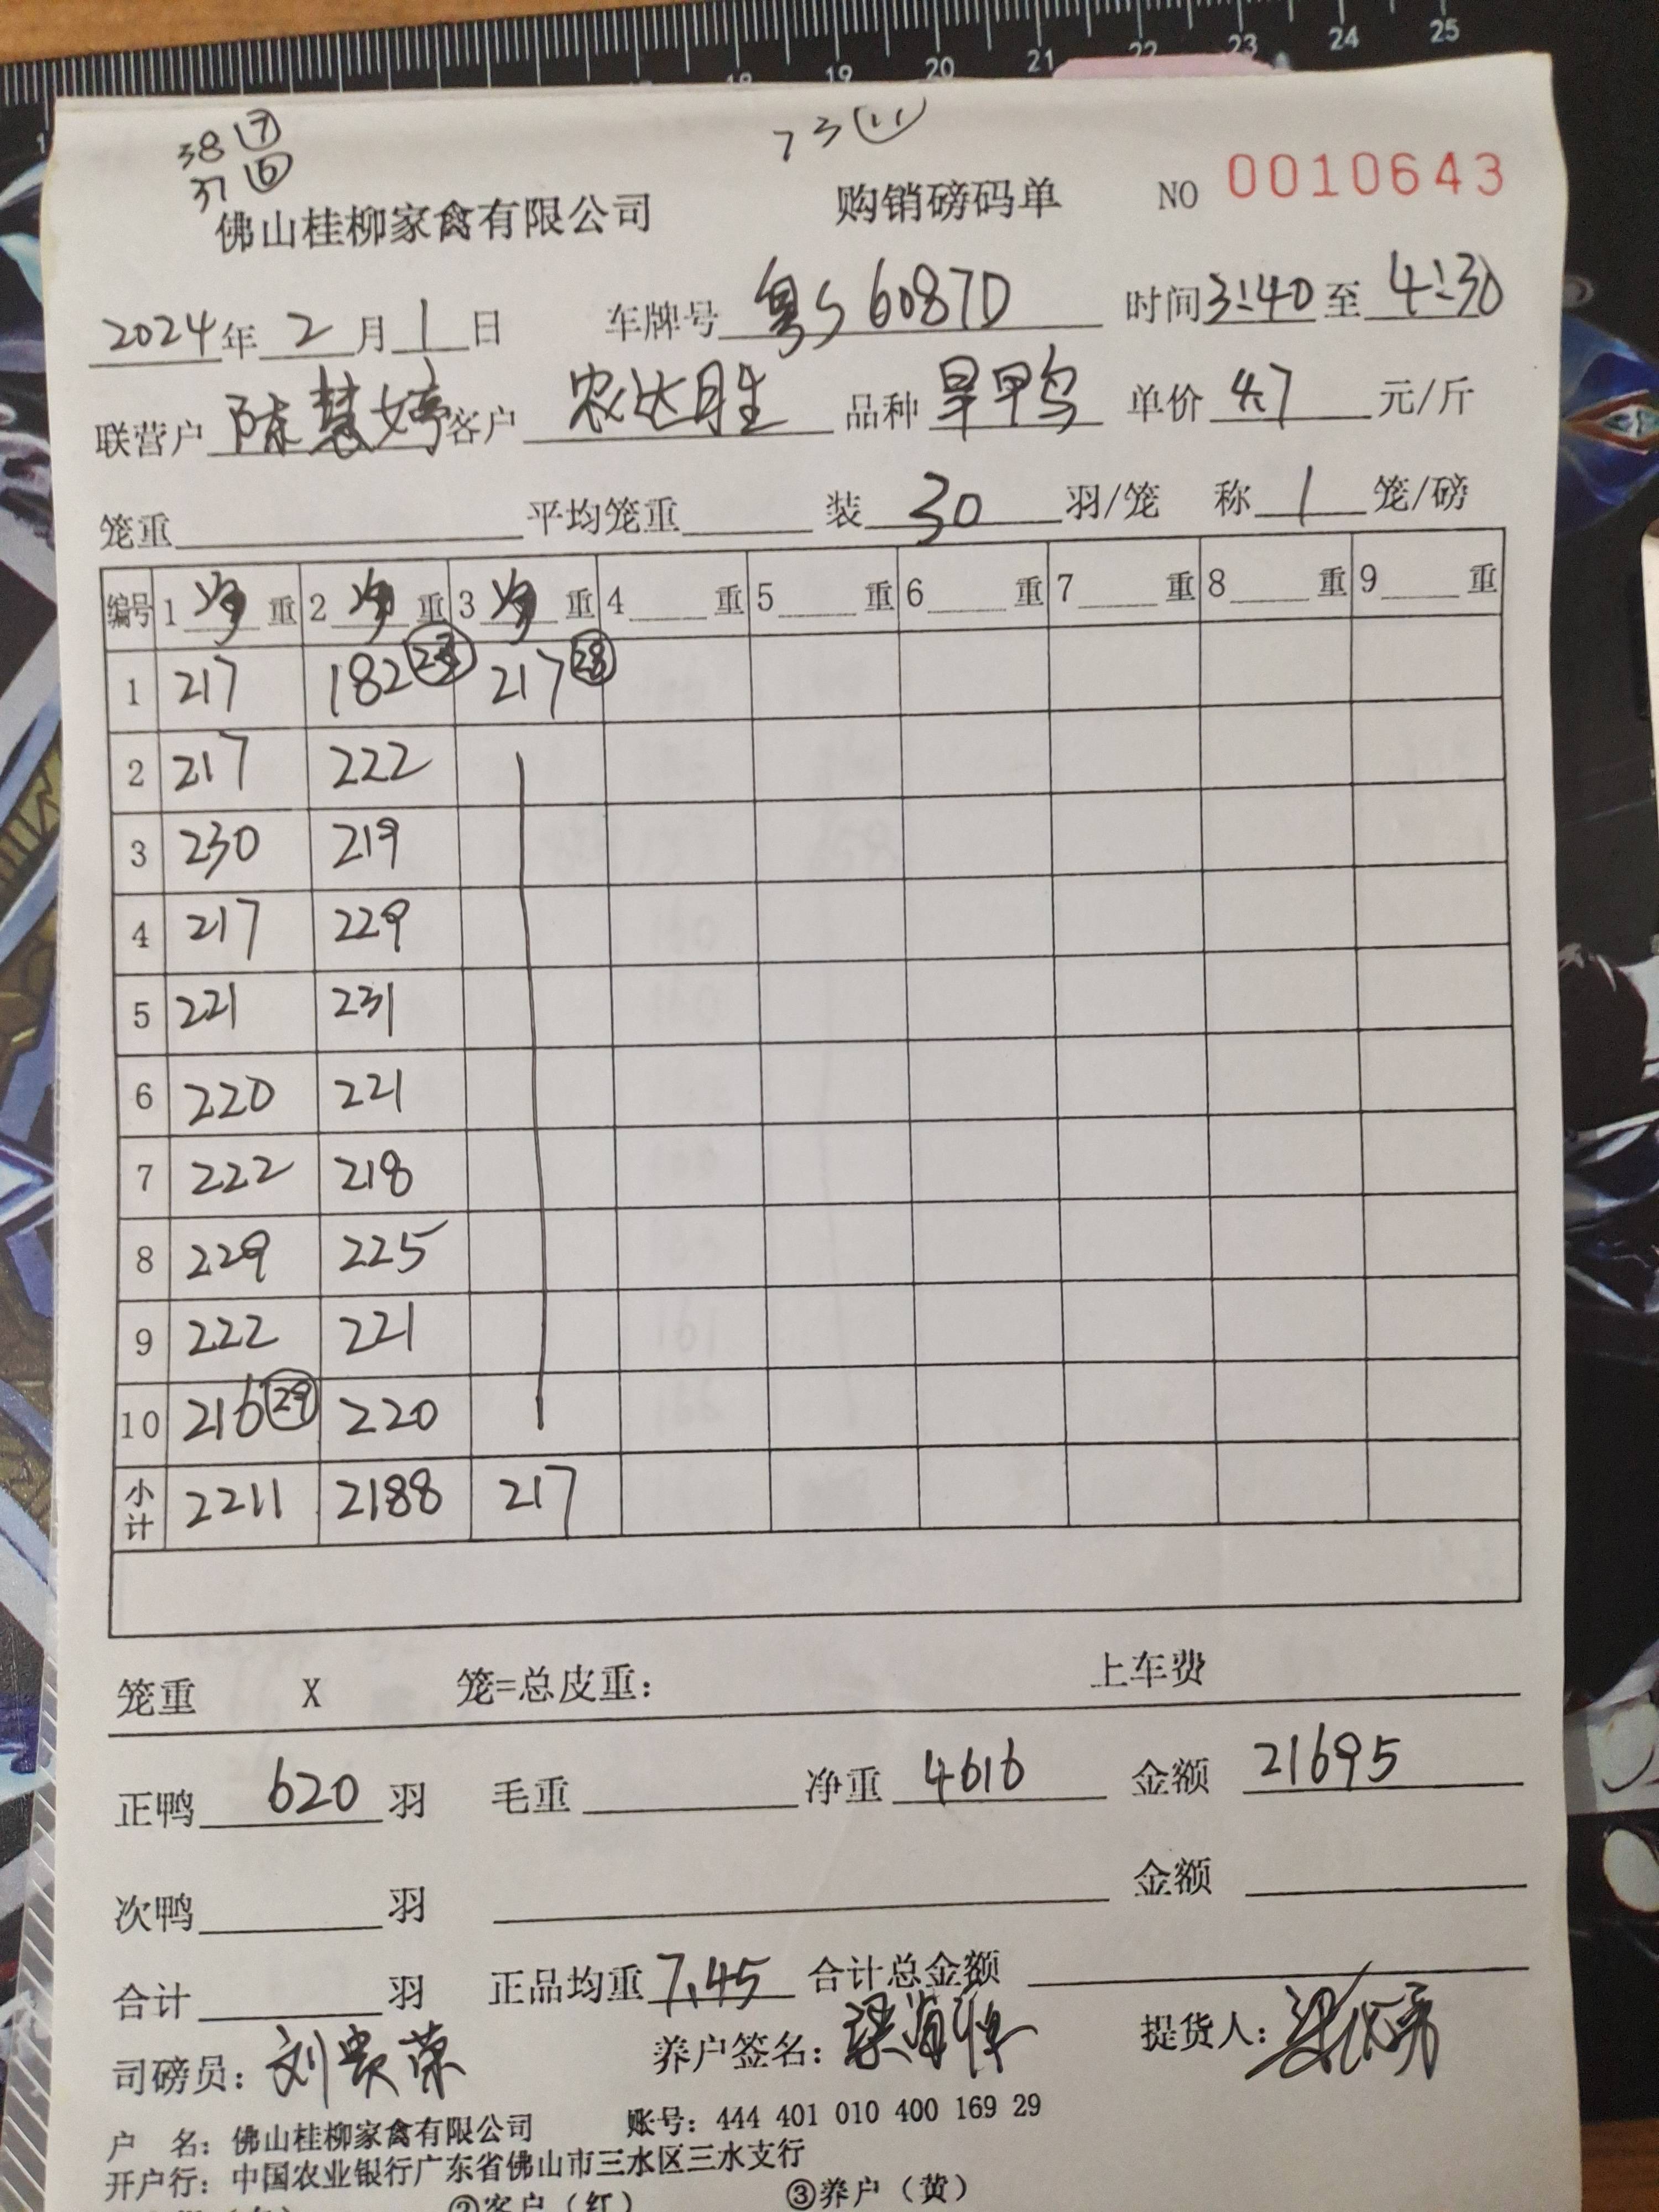 18 19 20 21 22 23 24 25
38 17
37 16
73 11
佛山桂柳家禽有限公司 购销磅码单 NO 0010643
2024年 2 月 1 日 车牌号 粤S6087D 时间 3:40 至 4:30
联营户 陈慧婷 客户 农达胜 品种 旱甲鸟 单价 4.7 元/斤
笼重 平均笼重 装 30 羽/笼 称 1 笼/磅
编号 1 净 重 2 净 重 3 净 重 4 重 5 重 6 重 7 重 8 重 9 重
1 217 182 217 28
2 217 222
3 230 219
4 217 229
5 221 231
6 220 221
7 222 218
8 229 225
9 222 221
10 216 29 220
小计 2211 2188 217
笼重 X 笼=总皮重: 上车费
正鸭 620 羽 毛重 净重 4616 金额 21695
次鸭 羽 金额
合计 羽 正品均重 7.45 合计总金额
司磅员: 刘贵荣 养户签名: 提货人:
户 名: 佛山桂柳家禽有限公司 账号: 444 401 010 400 169 29
开户行: 中国农业银行广东省佛山市三水区三水支行
②客户(红) ③养户(黄)